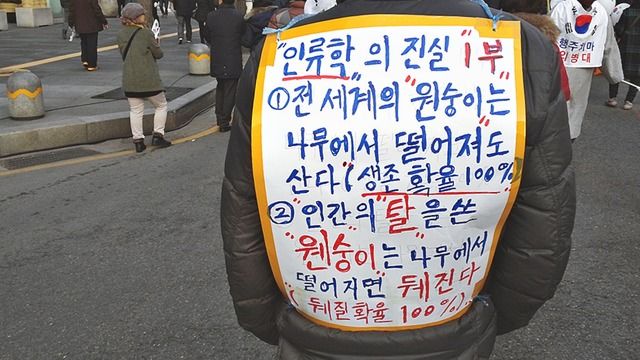 "인류학"의 진실 "1부"
① 전 세계의 "원숭이는
나무에서 떨어져도
산다 (생존확율 100%)
② "인간의 "탈"을 쓴
"원숭이"는 나무에서
떨어지면 뒈진다
(뒈질확율 100%)
행주치마
의병대